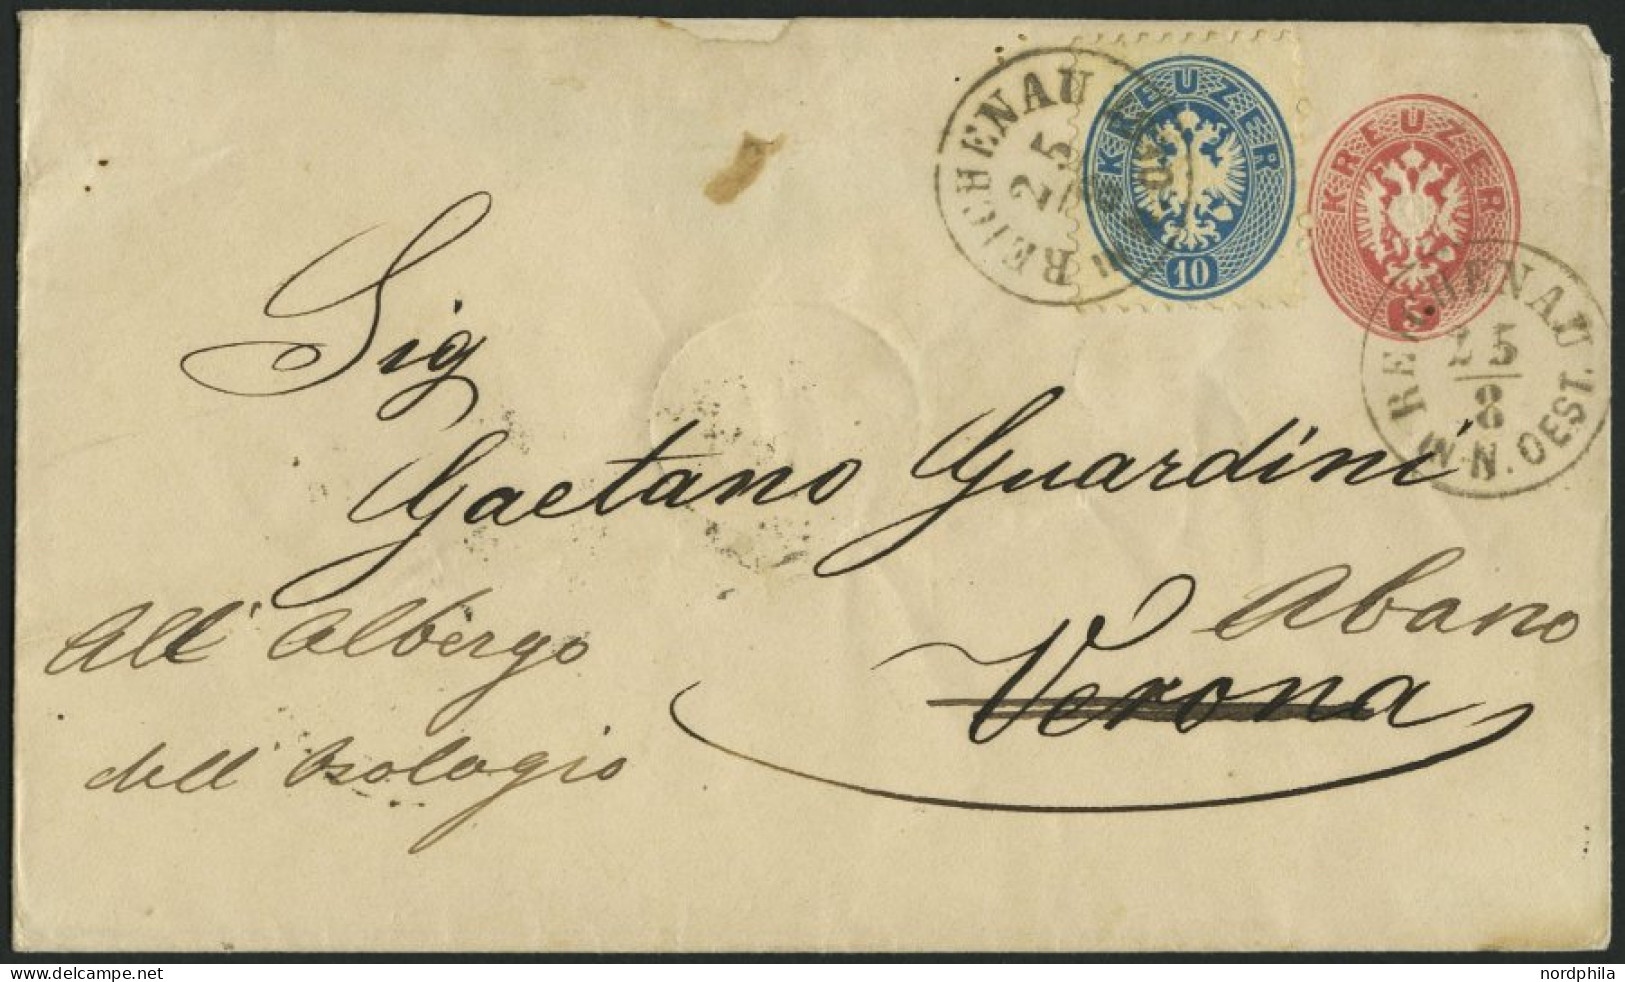 REICHENAU
25
KREUZER
10
KREUZER
5
REICHENAU
25
8
N. OEST.
Sig
Gaetano Guardini
Abano
Verona
All' Albergo
dell' Orologio
nordphila